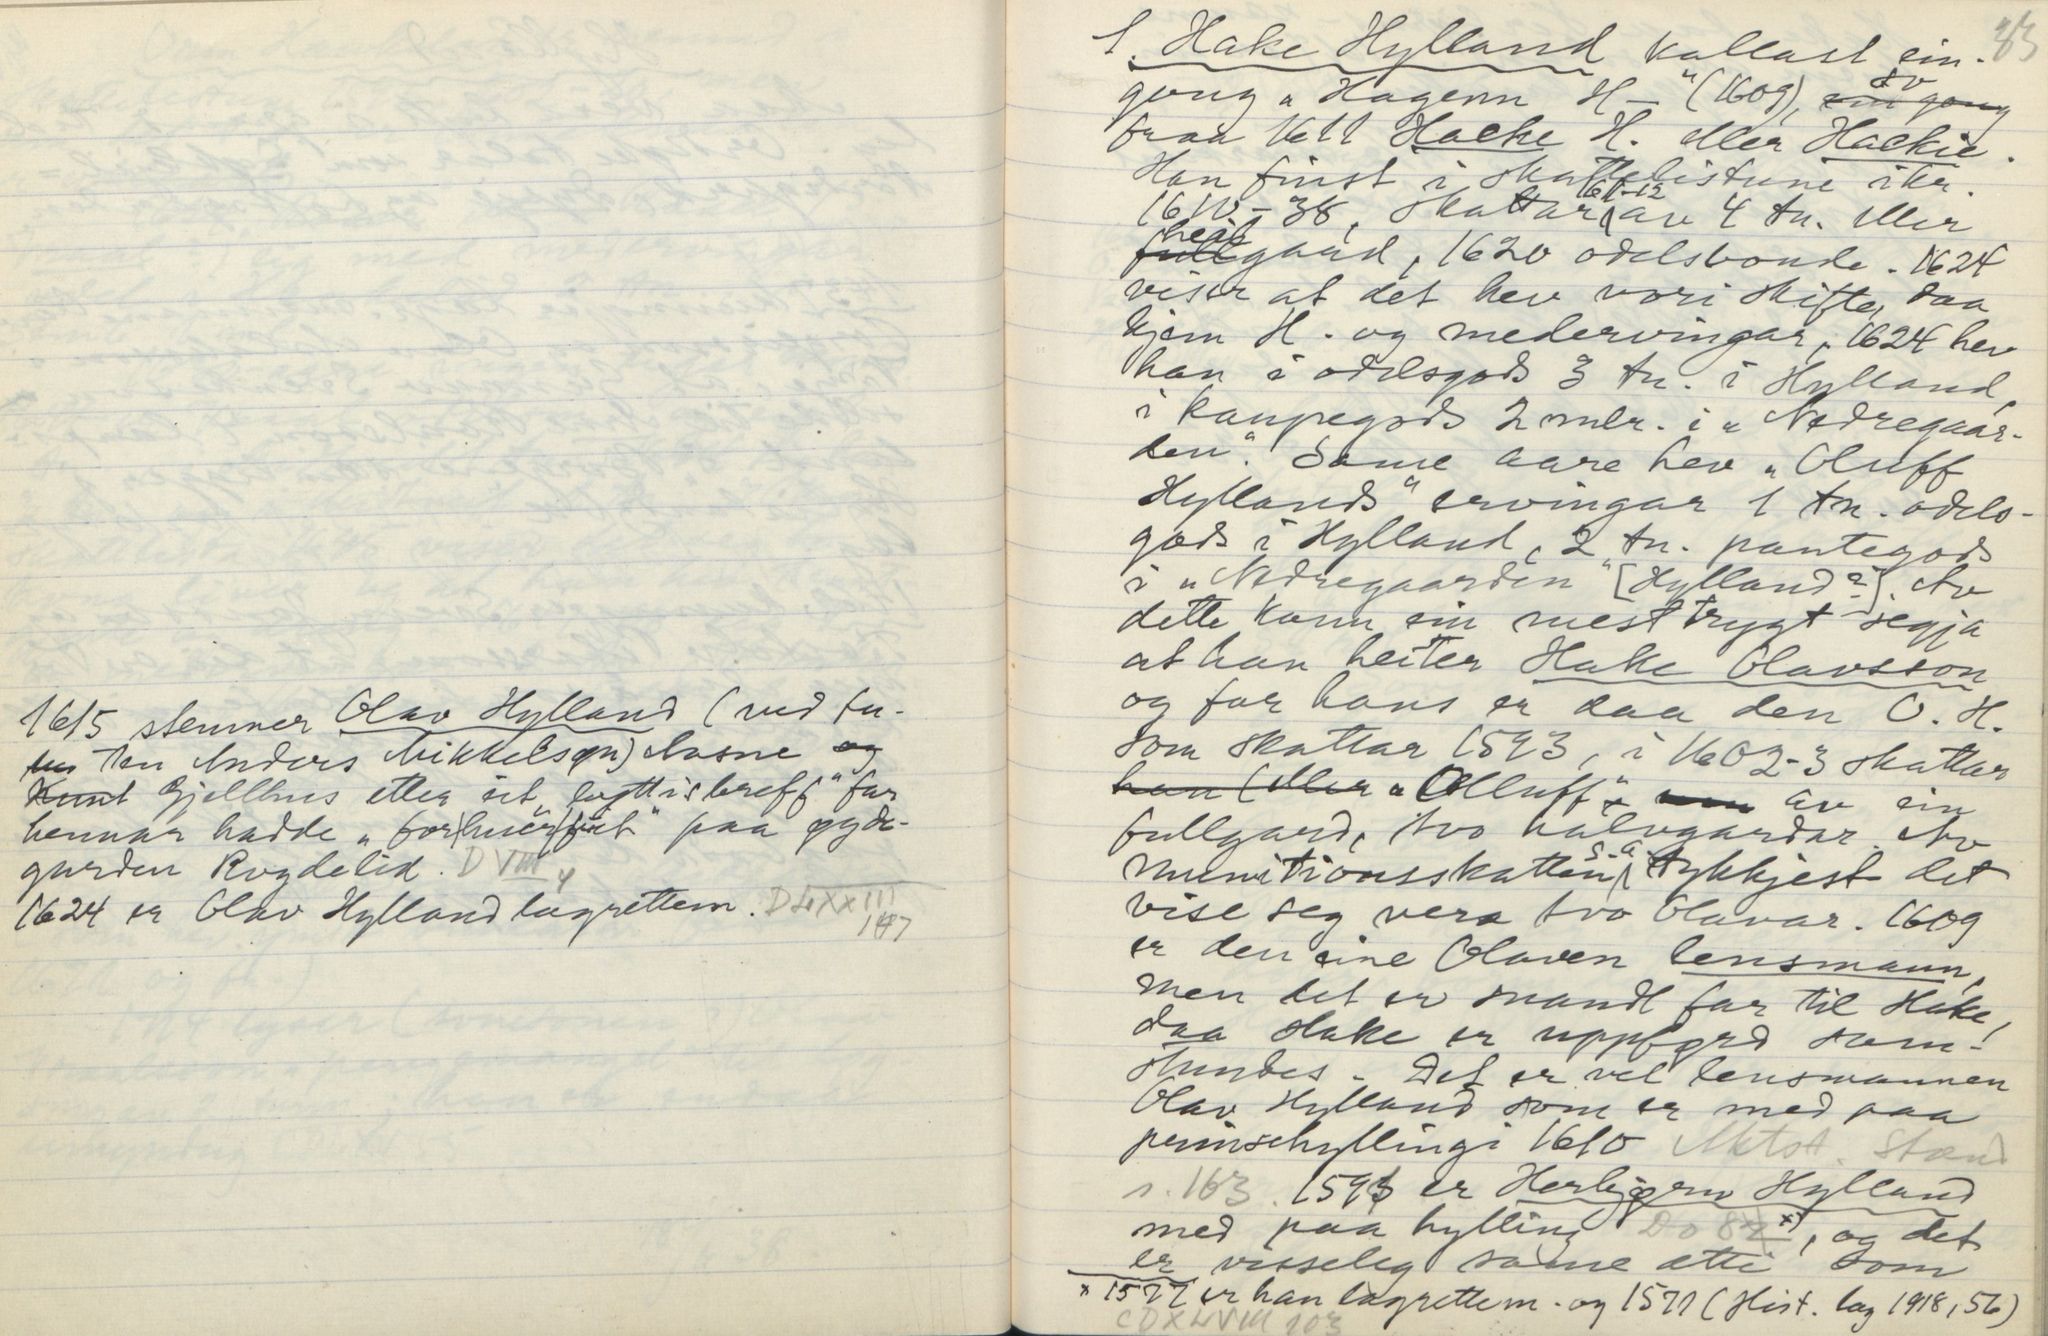 1615 stemner Olav Hylland (ved fu-
ten Anders Mikkelson) Aasne og
Knut Gjellhus etter eit „logttisbreff“ far
hennar hadde „forhuerfvet“ paa øyde-
garden Rugdelid. D VIII 4
1624 er Olav Hylland lagrettem. D LXXIII
147
83
1. Hake Hylland kallast ein-
gong „Hagenn H—“ (1609), ein gong av
fraa 1611 Hacke H. eller Hackie.
Han finst i skattelistune ikr.
1610-38, skattar 1611-12 av 4 tn. eller
full heil gaard, 1620 odelsbonde. 1624
viser at det hev vori skifte, daa
kjem H. og medervingar, 1624 hev
han i odelsgods 3 tn. i Hylland,
i kaupegods 2 mlr. i „Nedregaar-
den“. Same aare hev „Oluff
Hyllands“ ervingar 1 tn. odels-
gods i Hylland, 2 tn. pantegods
i „Nedregaarden“ [Hylland?]. Av
dette kann ein mest trygt segja
at han heiter Hake Olavsson
og far hans er daa den O. H.
som skattar 1593, i 1602-3 skattar
han (eller „Olluff“ av ein
fullgard, tvo halvgardar. Av
munitionsskatten s. a. tykkjest det
vise seg vera tvo Olavar. 1609
er den eine Olaven lensmann,
men det er snaudt far til Hake,
daa Hake er uppførd sam-
stundes. Det er vel lensmannen
Olav Hylland som er med paa
prinsehyllingi 1610 Aktst. Stænd
s. 163. 1591 er Herbjørn Hylland
med paa hylling Do 82 x), og det
er visseleg same ætti som
x 1577 er han lagrettem. og 1571 (Hist. lag 1918, 56)
CDXLVIII 103